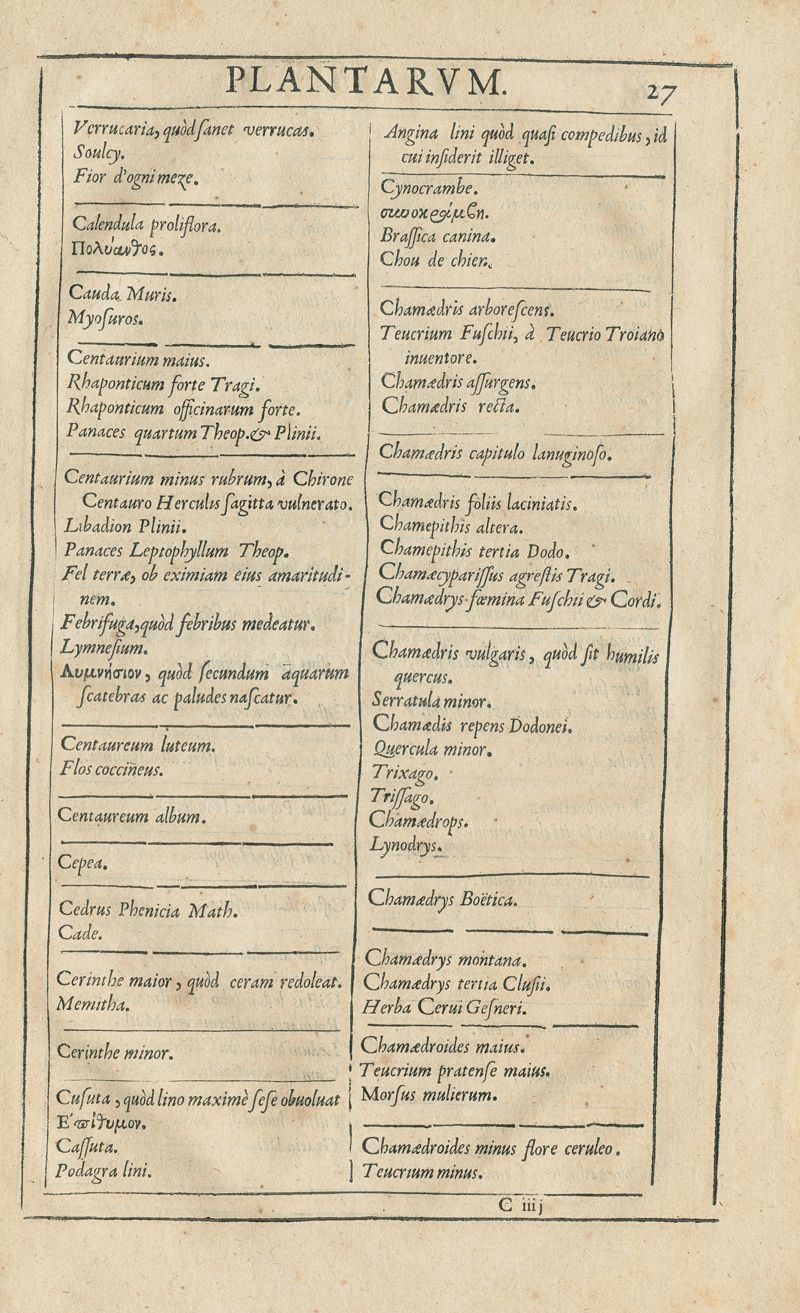 PLANTARVM.
27
Verrucaria, quòd ſanet verrucas.
Soulcy.
Fior d'ogni meze.
Calendula proliflora.
Πολύανθος.
Cauda Muris.
Myoſuros.
Centaurium maius.
Rhaponticum forte Tragi.
Rhaponticum officinarum forte.
Panaces quartum Theop. & Plinii.
Centaurium minus rubrum, à Chirone
Centauro Herculis ſagitta vulnerato.
Libadion Plinii.
Panaces Leptophyllum Theop.
Fel terræ, ob eximiam eius amaritudi-
nem.
Febrifuga, quòd febribus medeatur.
Lymneſium.
Λυμνήσιον, quòd ſecundum aquarum
ſcatebras ac paludes naſcatur.
Centaureum luteum.
Flos coccineus.
Centaureum album.
Cepea.
Cedrus Phenicia Math.
Cade.
Cerinthe maior, quòd ceram redoleat.
Memitha.
Cerinthe minor.
Cuſuta, quòd lino maximè ſeſe obuoluat
Ε'πίθυμον.
Caſſuta.
Podagra lini.
Angina lini quòd quaſi compedibus, id
cui inſiderit illiget.
Cynocrambe.
Braſſica canina.
Chou de chien.
Chamædris arboreſcens.
Teucrium Fuſchii, à Teucrio Troiano
inuentore.
Chamædris aſſurgens.
Chamædris recta.
Chamædris capitulo lanuginoſo.
Chamædris foliis laciniatis.
Chamepithis altera.
Chamepithis tertia Dodo.
Chamæcypariſſus agreſtis Tragi.
Chamædrys fœmina Fuſchii & Cordi.
Chamædris vulgaris, quòd ſit humilis
quercus.
Serratula minor.
Chamædis repens Dodonei.
Quercula minor.
Trixago.
Triſſago.
Chamædrops.
Lynodrys.
Chamædrys Boëtica.
Chamædrys montana.
Chamædrys tertia Cluſii.
Herba Cerui Geſneri.
Chamædroides maius.
Teucrium pratenſe maius.
Morſus mulierum.
Chamædroides minus flore ceruleo.
Teucrium minus.
C iiij